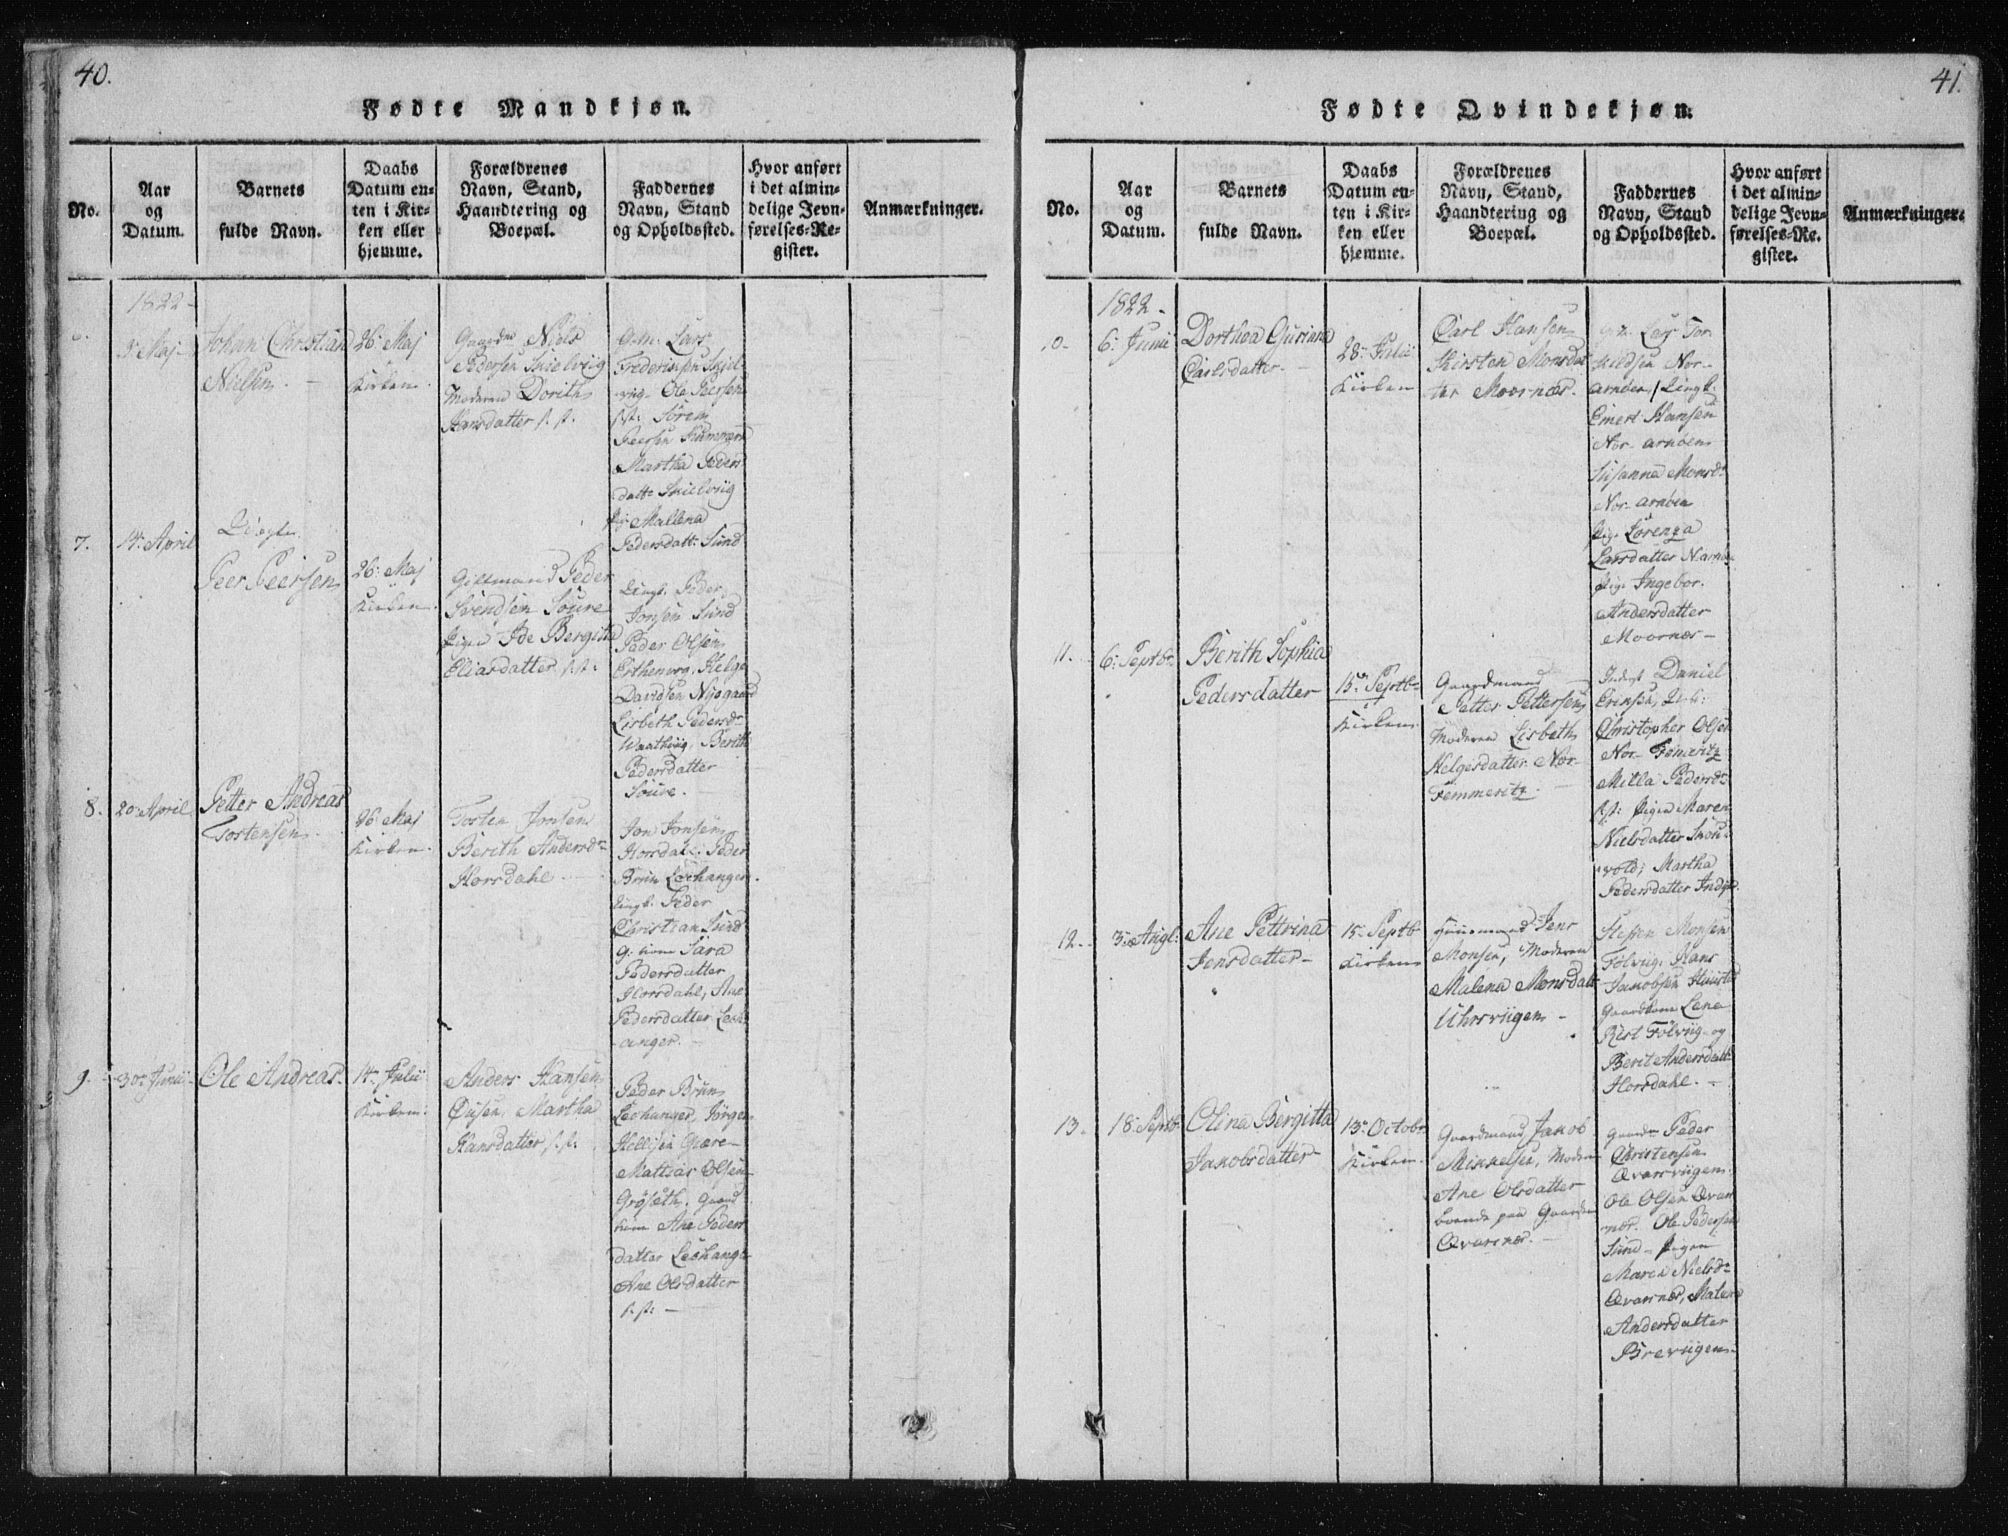 40.
Fødte Mandkjøn.
No.
Aar
og
Datum.
Barnets
fulde Navn.
Daabs
Datum en-
ten i Kir-
ken eller
hjemme.
Forældrenes
Navn, Stand,
Haandtering og
Boepæl.
Faddernes
Navn, Stand
og Opholdssted.
Hvor anført
i det almin-
delige Jevn-
førelses-Re-
gister.
Anmærkninger.
1822-
Maj
Johan Christian
Nielsen. -
26: Maj
Kirken.
Niels
Pedersen
Moderen Dorith
Hansdatter s. st.
G.m. Lars
Ole Peersen
s. st: Søren
Peersen
Martha Peders
datt:
Pig: Mallena
Pedersdatt: Sund
7.
14: April
Peer Peersen
26: Maj
Kirken.
Peder
Svendsen Soure
Pigen Ide Bergitta
Eliasdatter s. st:
Ungk. Peder
Jonsen Sund
Peder Olsen
Helge
Davidsen Nygaard
Lisbeth Pedersdr
Berith
Pedersdatter
Soure.
8.
20: April
Petter Andreas
Tostensen.
26 Maj
Kirken.
Tosten Jonsen
Berith Andersdr
Horsdahl
Jon Jonsen
Horsdahl. Peder
Brun Leshanger.
Ungk. Peder
Christian Sund
G: kone Sara
Pedersdatter
Horsdahl, Ane
Pedersdatter Lesh
anger. -
9.
30: Junii
Ole Andreas.
14: Julii
Kirken.
Anders Hansen
Øusen, Martha
Hansdatter s. st:
Peder Brun
Leshanger, Jørgen
Mattias Olsen
Gaard
kone Ane Peders
datter Leshang:
Ane Olsdatter
s. st: -
41.
Fødte Qvindekjøn.
No.
Aar
og
Datum.
Barnets
fulde Navn.
Daabs
Datum en-
ten i Kir-
ken eller
hjemme.
Forældrenes
Navn, Stand,
Haandtering og
Boepæl.
Faddernes
Navn, Stand
og Opholdssted.
Hvor anført
i det almin-
delige Jevn-
førelses-Re-
gister.
Anmærkninger.
1822-
6: Junii
Dorthea Guriana
Carlsdatter. -
28: Julii
Kirken
Carl Hansen
Kirsten Monsdat
ter Moornær.
Lars Tor
kildsen Nor-
arnøen, Ungk:
Emert Hansen
Nor- arnøen
Susanna Monsdr
Nor- arnøen
Pige Lorenza
Larsdatter N. arnøe
Pige Ingebor.
Andersdatter
Moornær -
11.
6: Septbr
Berith Sophia
Pedersdatter
15de Septbr
Kirken.
Gaardmand
Petter Pettersen
Moderen Lisbeth
Helgesdatter Nor-
Femmeritz. -
Daniel
Christopher Olsen
Nor- Femeritz
Mitla Pedersdr
s. st: Pigen Maren
Nielsdatter Skou-
vold; Martha
Pedersdatter
12.
3: Augl:
Ane Pettrina
Jensdatter -
15: Septb
Kirken
Huusmand Jens
Monsen, Moderen
Malena Monsdatt
Uhrsviigen -
Steffen Monsen
Hans
Jakobsen
Gaardkone Lene
og
Berit Andersdatt
Horsdahl. -
13.
18: Septb:
Olina Bergitta
Jakobsdatter
13: Octobr
Kirken.
Gaardmand Jakob
Mikkelsen, Moderen
Ane Olsdatter
boende paa Gaarden
Qvarsnær. -
Gaardm Peder
Christensen
Qvarsviigen.
Ole Olsen Qvars
nær. Ole Pedersen
Sund - Pigen
Maren Nielsdr
Qvarsnær, Malena
Andersdatter
Breviigen